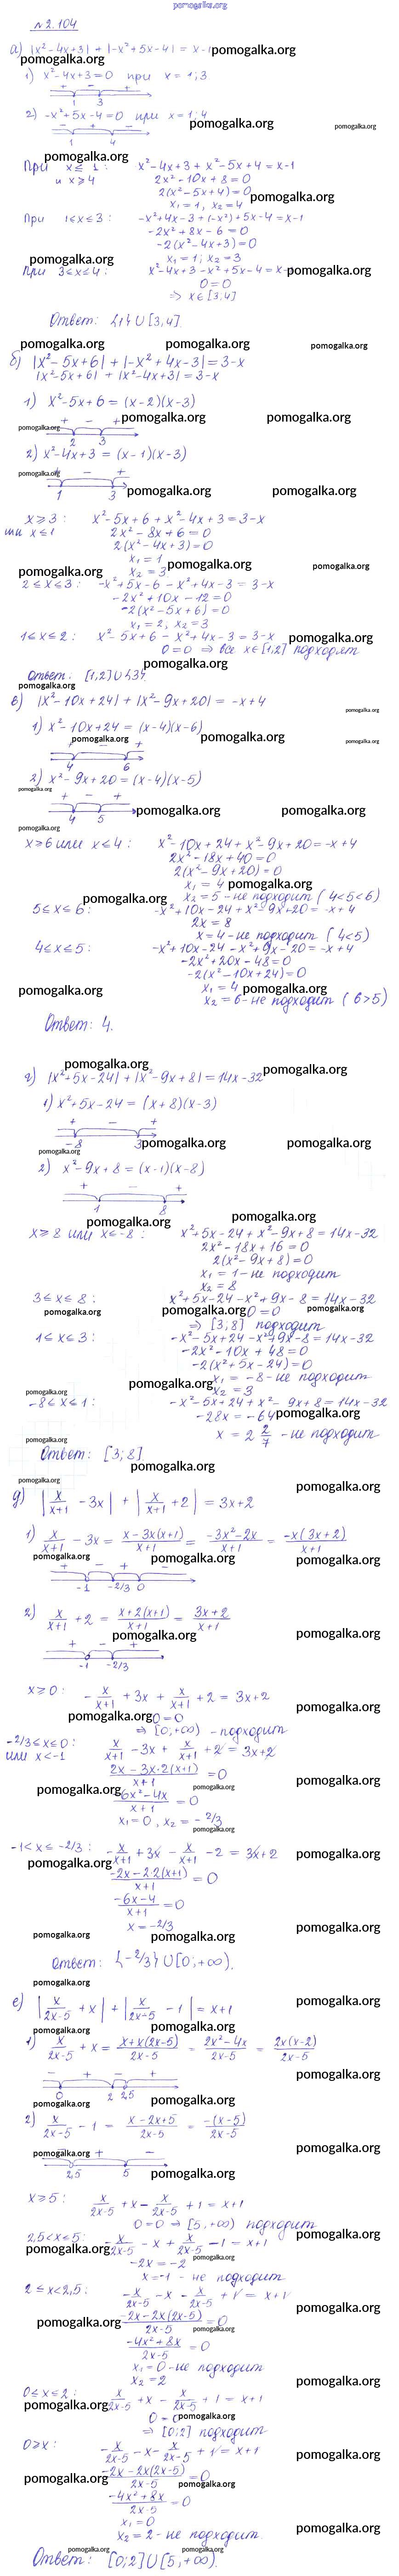 pomogalka.org
№2.104
а) |x² - 4x + 3| + |-x² + 5x - 4| = x - 1 pomogalka.org
pomogalka.org
1) x² - 4x + 3 = 0 при x = 1; 3
+ - +
1 3
2) -x² + 5x - 4 = 0 при x = 1; 4
pomogalka.org pomogalka.org
- + -
1 4
pomogalka.org
При x ≤ 1: x² - 4x + 3 + x² - 5x + 4 = x - 1
и x ≥ 4 2x² - 10x + 8 = 0
2(x² - 5x + 4) = 0
pomogalka.org
x₁ = 1, x₂ = 4
При 1 ≤ x ≤ 3: -x² + 4x - 3 + (-x²) + 5x - 4 = x - 1
-2x² + 8x - 6 = 0
-2(x² - 4x + 3) = 0
pomogalka.org
x₁ = 1; x₂ = 3
При 3 ≤ x ≤ 4: x² - 4x + 3 - x² + 5x - 4 = x - pomogalka.org
0 = 0
⇒ x ∈ [3; 4]
Ответ: {1} ∪ [3; 4]
pomogalka.org pomogalka.org pomogalka.org
б) |x² - 5x + 6| + |-x² + 4x - 3| = 3 - x
|x² - 5x + 6| + |x² - 4x + 3| = 3 - x
1) x² - 5x + 6 = (x - 2)(x - 3)
pomogalka.org pomogalka.org pomogalka.org
+ - +
2 3
2) x² - 4x + 3 = (x - 1)(x - 3)
pomogalka.org
+ - +
1 3 pomogalka.org pomogalka.org
x ≥ 3: x² - 5x + 6 + x² - 4x + 3 = 3 - x
или x ≤ 1 2x² - 8x + 6 = 0
2(x² - 4x + 3) = 0
x₁ = 1 pomogalka.org pomogalka.org
pomogalka.org x₂ = 3
2 ≤ x ≤ 3: -x² + 5x - 6 - x² + 4x - 3 = 3 - x
-2x² + 10x - 12 = 0
-2(x² - 5x + 6) = 0
x₁ = 2, x₂ = 3
1 ≤ x ≤ 2: x² - 5x + 6 - x² + 4x - 3 = 3 - x pomogalka.org
0 = 0 ⇒ все x ∈ [1; 2] подходят
pomogalka.org
Ответ: [1; 2] ∪ {3}.
pomogalka.org
в) |x² - 10x + 24| + |x² - 9x + 20| = -x + 4
pomogalka.org
1) x² - 10x + 24 = (x - 4)(x - 6)
pomogalka.org pomogalka.org pomogalka.org
+ - +
4 6
2) x² - 9x + 20 = (x - 4)(x - 5)
pomogalka.org
+ - +
4 5 pomogalka.org pomogalka.org
pomogalka.org
x ≥ 6 или x ≤ 4: x² - 10x + 24 + x² - 9x + 20 = -x + 4
2x² - 18x + 40 = 0
2(x² - 9x + 20) = 0
x₁ = 4 pomogalka.org
pomogalka.org x₂ = 5 - не подходит (4 < 5 < 6)
5 ≤ x ≤ 6: -x² + 10x - 24 + x² - 9x + 20 = -x + 4
2x = 8
x = 4 - не подходит (4 < 5)
4 ≤ x ≤ 5: -x² + 10x - 24 - x² + 9x - 20 = -x + 4
-2x² + 20x - 48 = 0
-2(x² - 10x + 24) = 0
pomogalka.org x₁ = 4 pomogalka.org
x₂ = 6 - не подходит (6 > 5)
Ответ: 4.
pomogalka.org pomogalka.org
г) |x² + 5x - 24| + |x² - 9x + 8| = 14x - 32
1) x² + 5x - 24 = (x + 8)(x - 3)
+ - +
-8 3 pomogalka.org pomogalka.org
pomogalka.org
2) x² - 9x + 8 = (x - 1)(x - 8)
+ - +
1 8
pomogalka.org pomogalka.org
x ≥ 8 или x ≤ -8: x² + 5x - 24 + x² - 9x + 8 = 14x - 32
2x² - 18x + 16 = 0
2(x² - 9x + 8) = 0
x₁ = 1 - не подходит
x₂ = 8
3 ≤ x ≤ 8: x² + 5x - 24 - x² + 9x - 8 = 14x - 32
pomogalka.org pomogalka.org 0 = 0 pomogalka.org
⇒ [3; 8] подходит
1 ≤ x ≤ 3: -x² - 5x + 24 - x² + 9x - 8 = 14x - 32
-2x² - 10x + 48 = 0
-2(x² + 5x - 24) = 0
pomogalka.org x₁ = -8 - не подходит
pomogalka.org x₂ = 3
-8 ≤ x ≤ 1: -x² - 5x + 24 + x² - 9x + 8 = 14x - 32
-28x = -64 pomogalka.org
x = 2 2/7 - не подходит
pomogalka.org
Ответ: [3; 8]
pomogalka.org
pomogalka.org pomogalka.org
д) |x/(x+1) - 3x| + |x/(x+1) + 2| = 3x + 2
1) x/(x+1) - 3x = (x - 3x(x+1))/(x+1) = (-3x² - 2x)/(x+1) = (-x(3x+2))/(x+1)
pomogalka.org pomogalka.org pomogalka.org
+ - + -
-1 -2/3 0
2) x/(x+1) + 2 = (x + 2(x+1))/(x+1) = (3x+2)/(x+1)
pomogalka.org pomogalka.org
+ - +
-1 -2/3
x ≥ 0: -x/(x+1) + 3x + x/(x+1) + 2 = 3x + 2
pomogalka.org
pomogalka.org 0 = 0
⇒ [0; +∞) - подходит
-2/3 ≤ x ≤ 0: x/(x+1) - 3x + x/(x+1) + 2 = 3x + 2
или x < -1
(2x - 3x·2(x+1))/(x+1) = 0
pomogalka.org pomogalka.org pomogalka.org
(-6x² - 4x)/(x+1) = 0
x₁ = 0, x₂ = -2/3
pomogalka.org
-1 < x ≤ -2/3: -x/(x+1) + 3x - x/(x+1) - 2 = 3x + 2
pomogalka.org pomogalka.org
(-2x - 2·2(x+1))/(x+1) = 0
(-6x - 4)/(x+1) = 0
x = -2/3
pomogalka.org pomogalka.org pomogalka.org
Ответ: {-2/3} ∪ [0; +∞).
pomogalka.org
е) |x/(2x-5) + x| + |x/(2x-5) - 1| = x + 1
pomogalka.org
pomogalka.org pomogalka.org
1) x/(2x-5) + x = (x + x(2x-5))/(2x-5) = (2x² - 4x)/(2x-5) = (2x(x-2))/(2x-5)
pomogalka.org
- + - +
0 2 2,5
pomogalka.org pomogalka.org pomogalka.org
2) x/(2x-5) - 1 = (x - 2x + 5)/(2x-5) = (-(x-5))/(2x-5)
pomogalka.org
pomogalka.org
- + -
2,5 5 pomogalka.org
x ≥ 5: x/(2x-5) + x - x/(2x-5) + 1 = x + 1
pomogalka.org
0 = 0 ⇒ [5; +∞) подходит
2,5 < x ≤ 5: x/(2x-5) - x + x/(2x-5) - 1 = x + 1
pomogalka.org pomogalka.org
-2x = -2
pomogalka.org
x = -1 - не подходит
2 ≤ x < 2,5: -x/(2x-5) - x - x/(2x-5) + 1 = x + 1
pomogalka.org
pomogalka.org (-2x - 2x(2x-5))/(2x-5) = 0
pomogalka.org
(-4x² + 8x)/(2x-5) = 0
x₁ = 0 - не подходит
x₂ = 2
pomogalka.org
0 ≤ x ≤ 2: x/(2x-5) + x - x/(2x-5) + 1 = x + 1
pomogalka.org
0 = 0 pomogalka.org
⇒ [0; 2] подходит
0 ≥ x: -x/(2x-5) - x - x/(2x-5) + 1 = x + 1
pomogalka.org
pomogalka.org (-2x - 2x(2x-5))/(2x-5) = 0
pomogalka.org
(-4x² + 8x)/(2x-5) = 0
x₁ = 0
x₂ = 2 - не подходит.
pomogalka.org
pomogalka.org pomogalka.org
Ответ: [0; 2] ∪ [5; +∞).